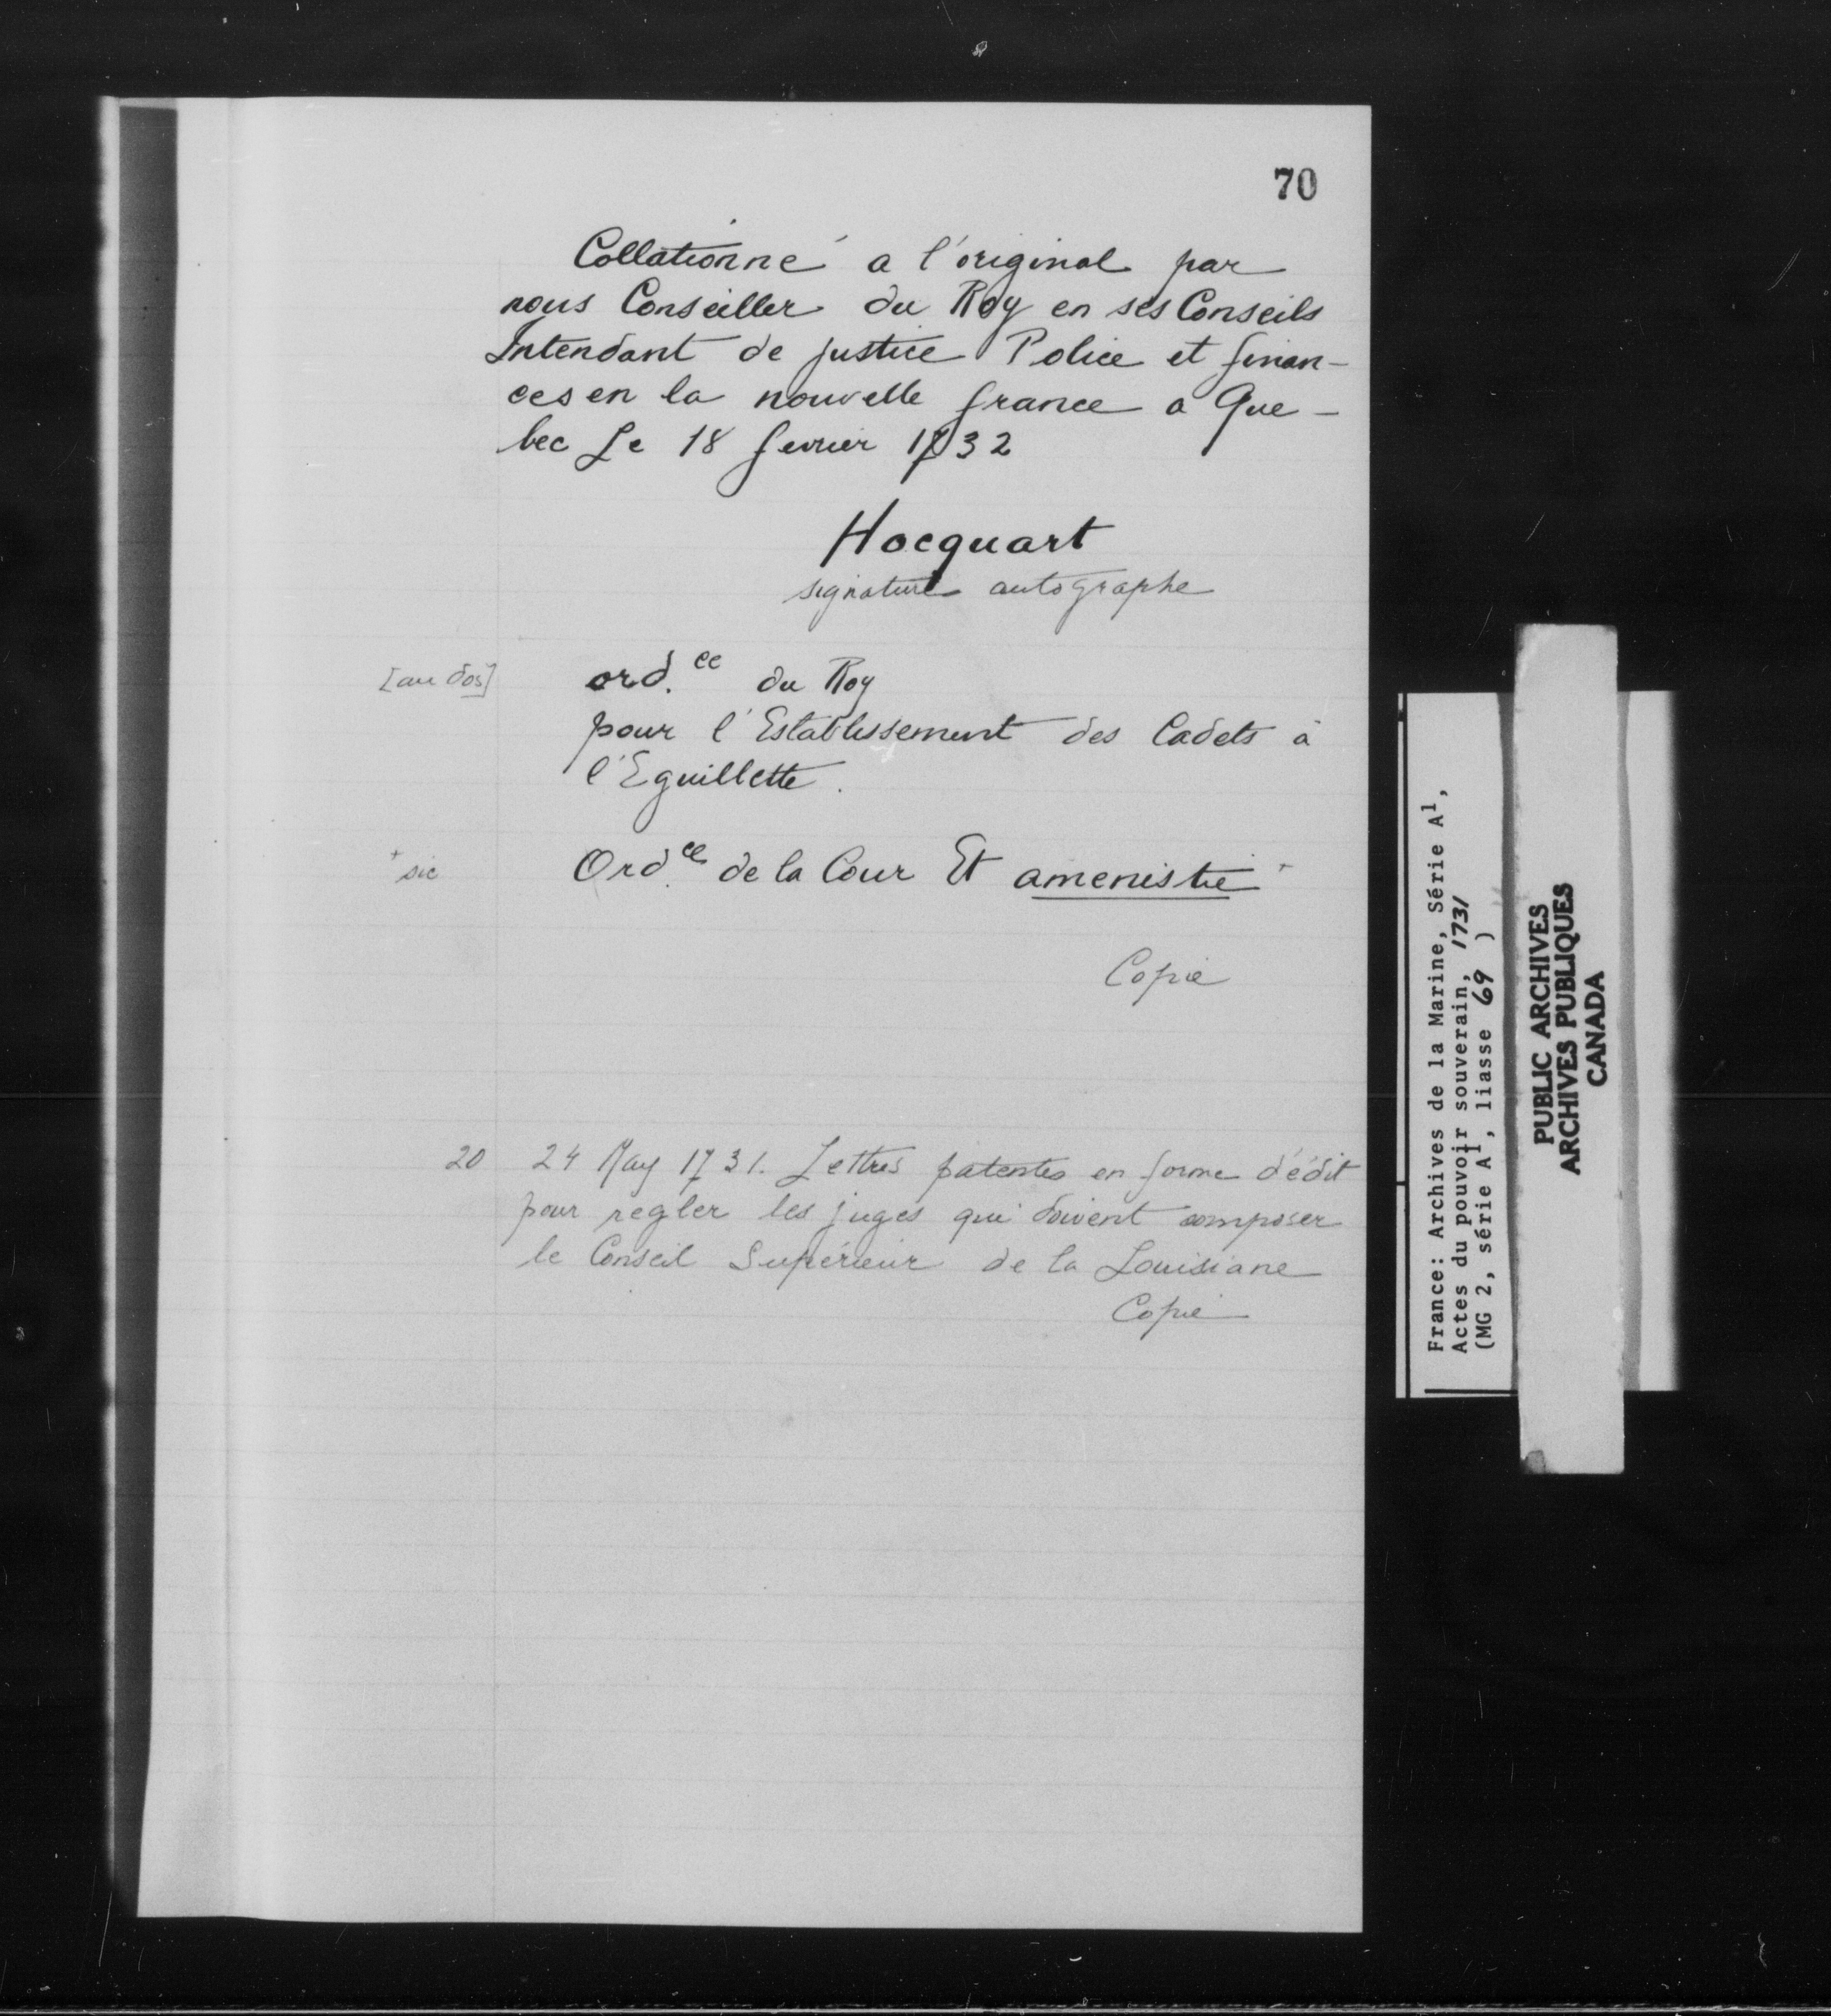 70
Collationné a l'original par
nous Conseiller du Roy en ses Conseils
Intendant de justice Police et finan-
ces en la nouvelle france a Que-
bec Le 18 fevrier 1732
Hocquart
signature autographe
[au dos]
ord.ce du Roy
pour l'Establissement des Cadets à
l'Eguillette.
+ sic
Ord.ce de la Cour Et amenistie +
Copie
20 24 May 1731. Lettres patentes en forme d'édit
pour regler les juges qui doivent composer
le Conseil Supérieur de la Louisiane
Copie
France: Archives de la Marine, Série A1,
Actes du pouvoir souverain, 1731
(MG 2, série A1, liasse 69 )
PUBLIC ARCHIVES
ARCHIVES PUBLIQUES
CANADA